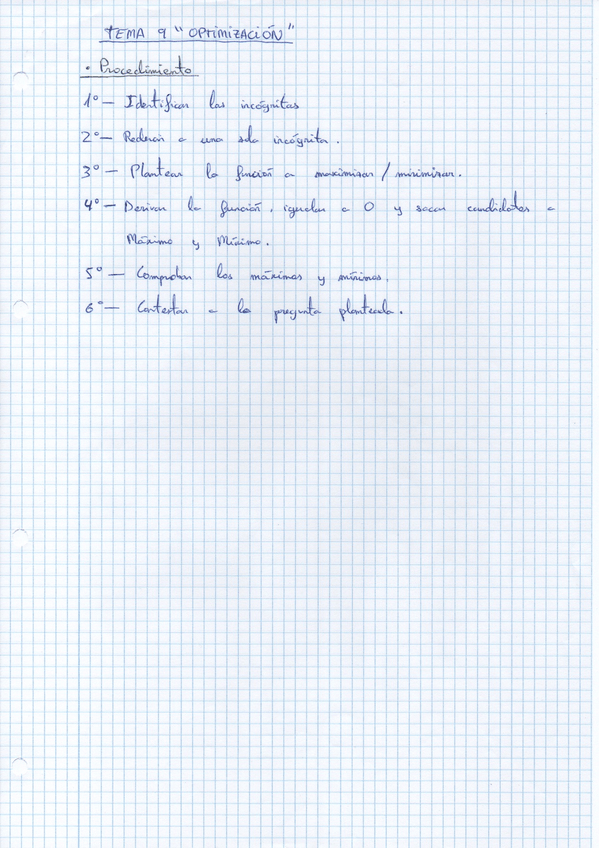 TEMA 9 "OPTIMIZACIÓN"
· Procedimiento
1º — Identificar las incógnitas
2º — Reducir a una sola incógnita.
3º — Plantear la función a maximizar / minimizar.
4º — Derivar la función, igualar a 0 y sacar candidatos a
Máximo y Mínimo.
5º — Comprobar los máximos y mínimos.
6º — Contestar a la pregunta planteada.